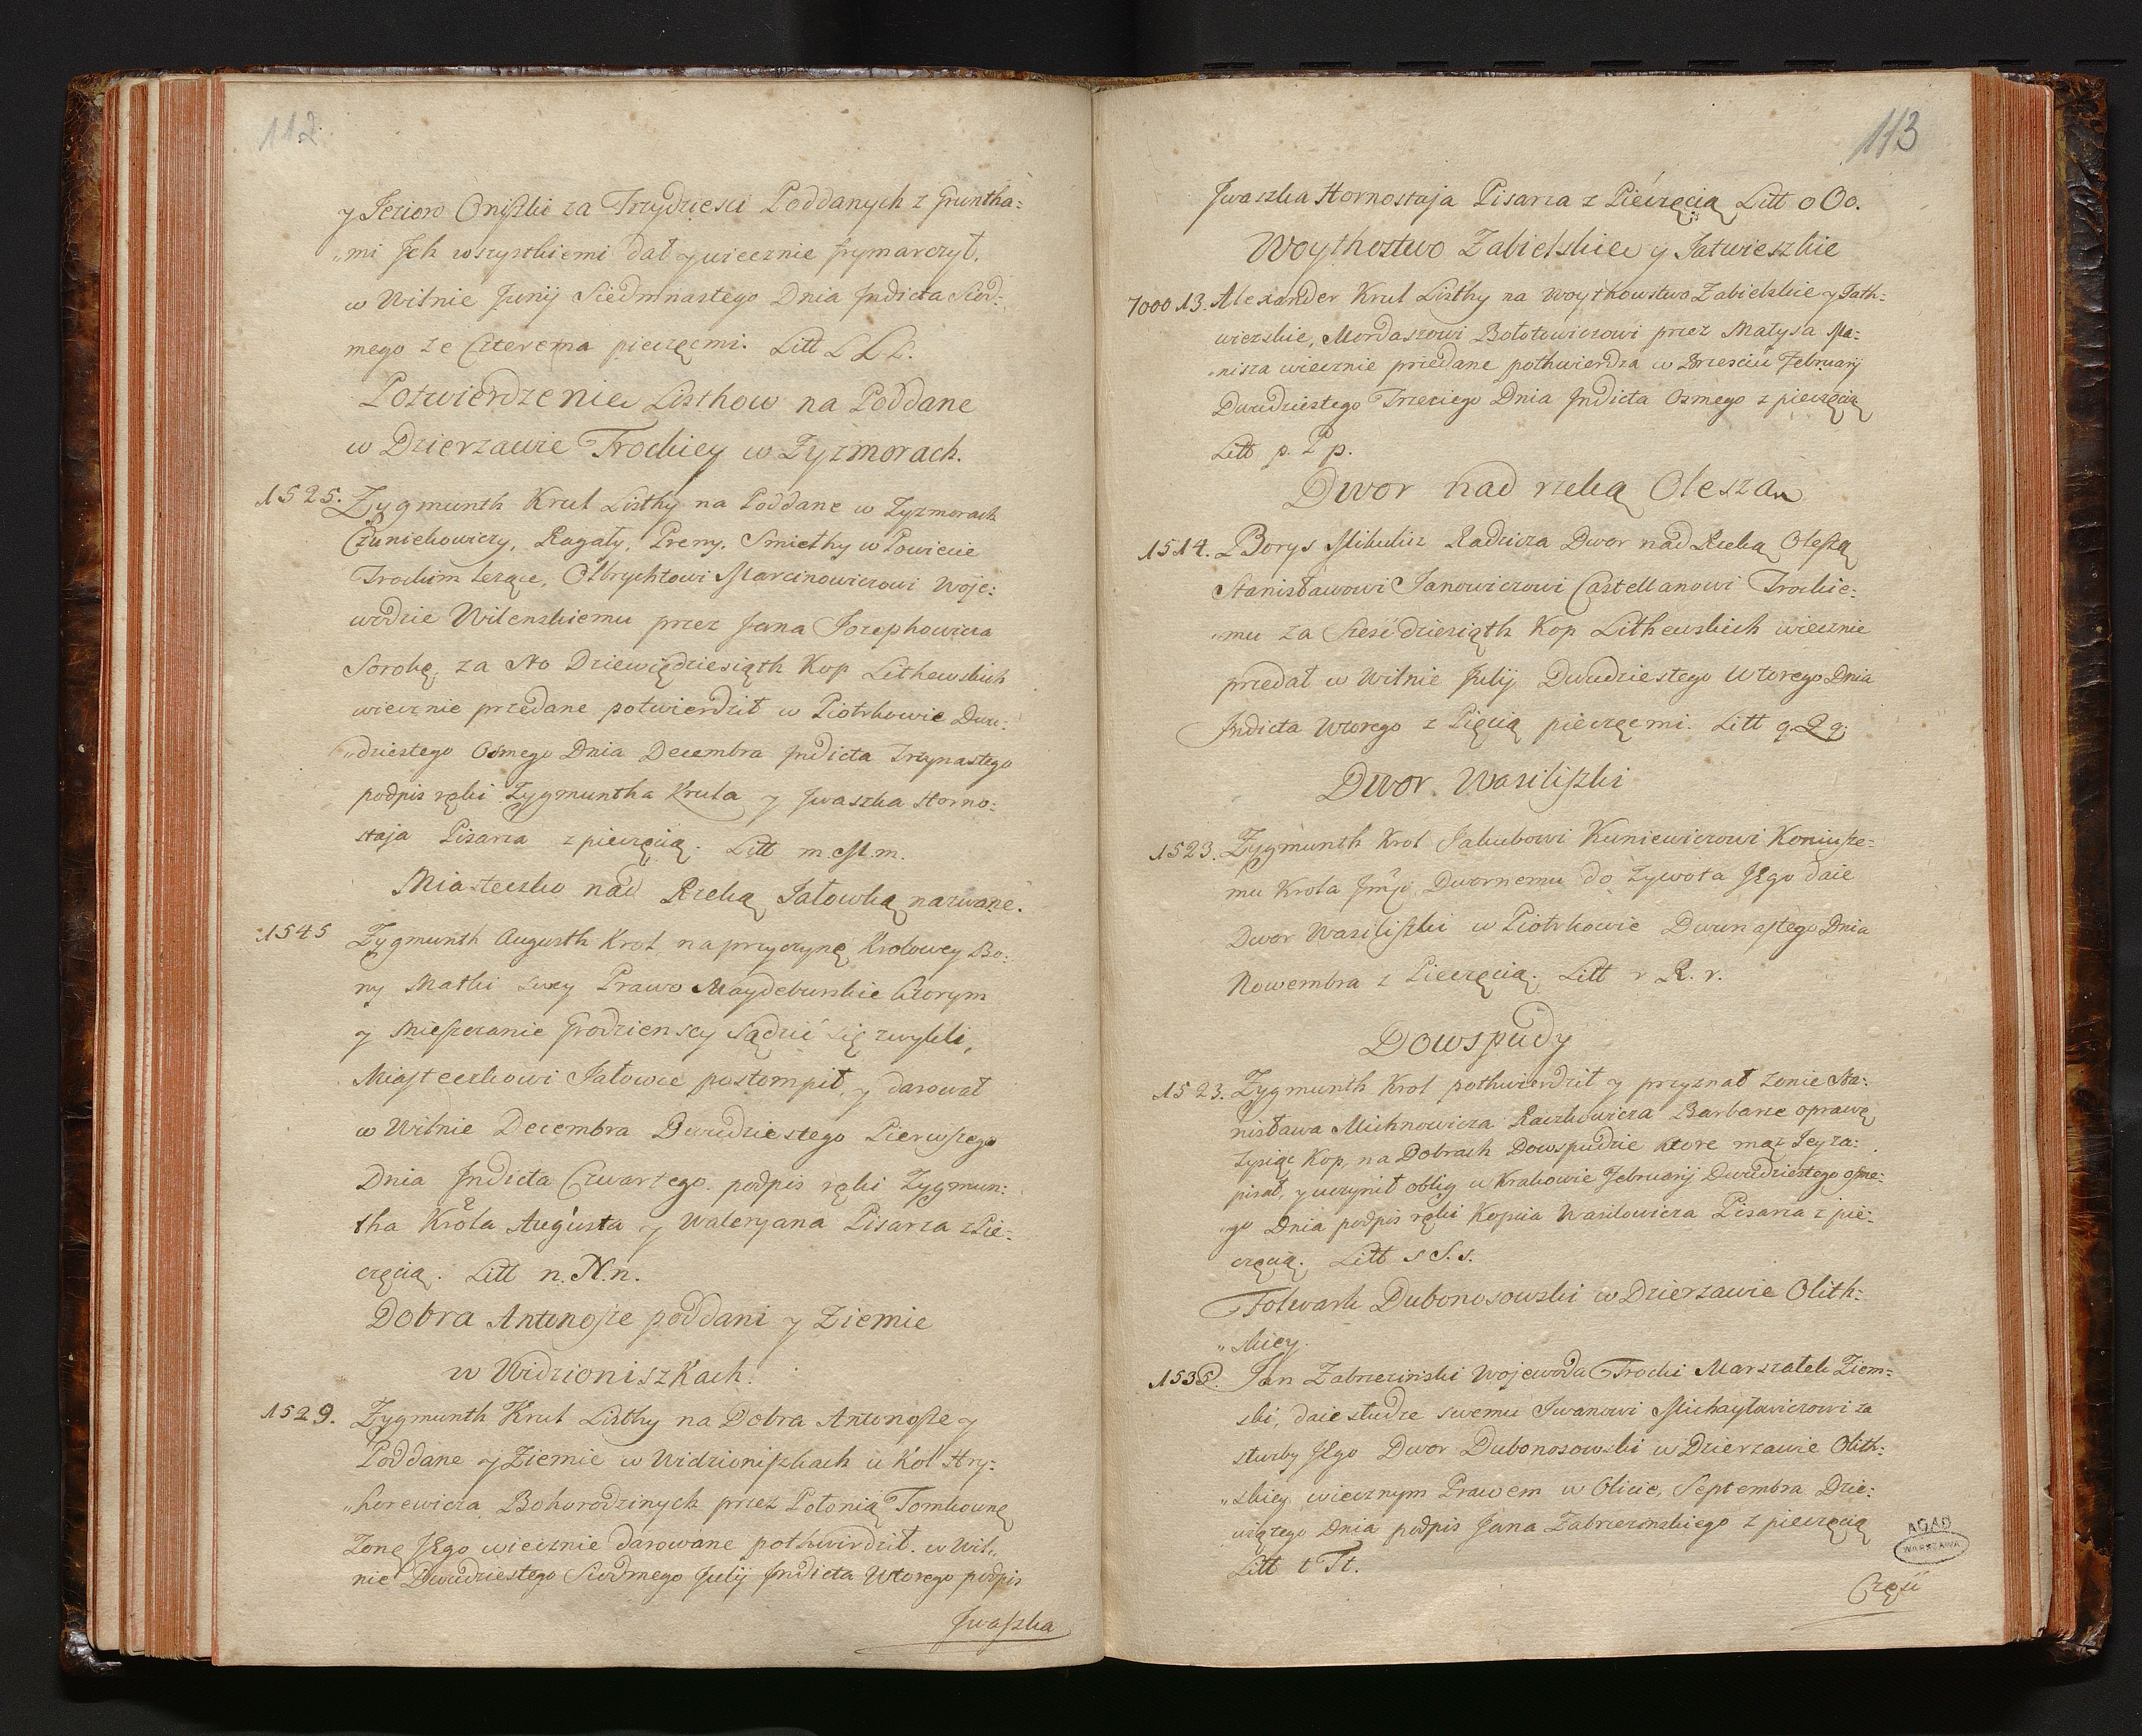 112.
y Jezioro Oniszki za Trzydziesci Poddanych z Gruntha=
„mi Jch wszystkiemi dał y wiecznie frymarczył,
w Wilnie Junij Siedmnastego Dnia Jndicta Siod=
mego ze Czterema pieczęcmi. Litt L L L.
Potwierdzenie Listhow na Poddane
w Dzierzawie Trockiey w Zyzmorach.
1525. Zygmunth Krul Listhy na Poddane w Zyzmorach
Czuniehowiczy, Ragały, Preny, Smiethy w Powiecie
Trockim lezące, Olbrychtowi Marcinowiczowi Woje:
wodzie Wilenskiemu przez Jana Jozephowicza
Sorokę, za Sto Dziewiędziesiąth Kop Lithewskich
wiecznie przedane potwierdził w Piotrkowie Dwu:
„dziestego Osmego Dnia Decembra Jndicta Trzynastego
podpis ręki Zygmuntha Krula y Jwaszka Horno:
staja Pisarza z pieczęcią. Litt m. M. m.
Miasteczko nad Rzeką Jałowką nazwane.
1545 Zygmunth Augusth Krol, na przyczynę Krolowey Bo:
ny Matki swey Prawo Maydeburskie ktorym
y Mieszczanie Grodzienscy sądzić się zwykli,
Miasteczkowi Jałowce postompił, y darował
w Wilnie Decembra Dwudziestego Pierwszego
Dnia Jndicta Czwartego. podpis ręki Zygmun:
tha Króla Augusta y Waleryana Pisarza z Pie:
częcią. Litt n. N. n.
Dobra Antonosze poddani y Ziemie
w Widzioniszkach.
1529. Zygmunth Krul Listhy na Dobra Antonosze y
Poddane y Ziemie w Widzioniszkach u Kol Hry:
„horewicza, Bohorodzinych przez Połonią Tomkownę
Zonę Jego wiecznie darowane pothwirdził. w Wil:
nie Dwudziestego Siodmego Julij Jndicta Wtorego podpis
Jwaszka
113
Jwaszka Hornostaja Pisarza z Pieczęcią Litt o O o.
Woythostwo Zabielskie y Jatwieszkie
7000 13. Alexander Krul Listhy na Woythowstwo Zabielskie y Jath:
wiezskie, Mordaszowi Bołotowiczowi przez Matysa Ma:
„nisza wiecznie przedane pothwierdza w Brzesciu February
Dwudziestego Trzeciego Dnia Jndicta Osmego z pieczęcią
Litt p. P p.
Dwor nad rzeką Olesza
1514. Borys Mikulicz Radzicza Dwor nad Rzeką Oleszą
Stanisławowi Janowiczowi Castellanowi Trockie:
„mu za Sześćdziesiąth Kop Lithewskich wiecznie
przedał w Wilnie Julij Dwudziestego Wtorego Dnia
Jndicta Wtorego z Pięcią pieczęcmi. Litt q. Q q.
Dwor Wasiliszki
1523. Zygmunth Krol Jakubowi Kuniewiczowi Koniusze=
mu Krola Jmjo Dwornemu do Zywota Jego daie
Dwor Wasiliszki w Piotrkowie Dwunastego Dnia
Nowembra z Pieczęcią. Litt r R. r.
Dowspudy
1523. Zygmunth Krol pothwierdził y przyznał zonie Sta:
nisława Michnowicza Raczkowicza Barbarze oprawę
Tysiąc Kop, na Dobrach Dowspudzie ktore mąz Jey za:
pisał, y uczynił oblig w Krakowie Februarij Dwudziestego osme:
„go Dnia podpis ręki Kopcia Wasilowicza Pisarza z pie:
częcią. Litt s S. s.
Folwark Dubonosowski w Dzierzawie Olith:
„skiey.
1536. Jan Zabrzezinski Wojewoda Trocki Marszałek Ziem=
ski, daie słudze swemu Jwanowi Michayłowiczowi za
służby Jego Dwor Dubonosowski w Dzierzawie Olith:
„skiey wiecznym Prawem w Olicie, Septembra Dzie:
wiątego Dnia podpis Jana Zabrzezinskiego z pieczęcią
Litt t T t.
AGAD
WARSZAWA
Część